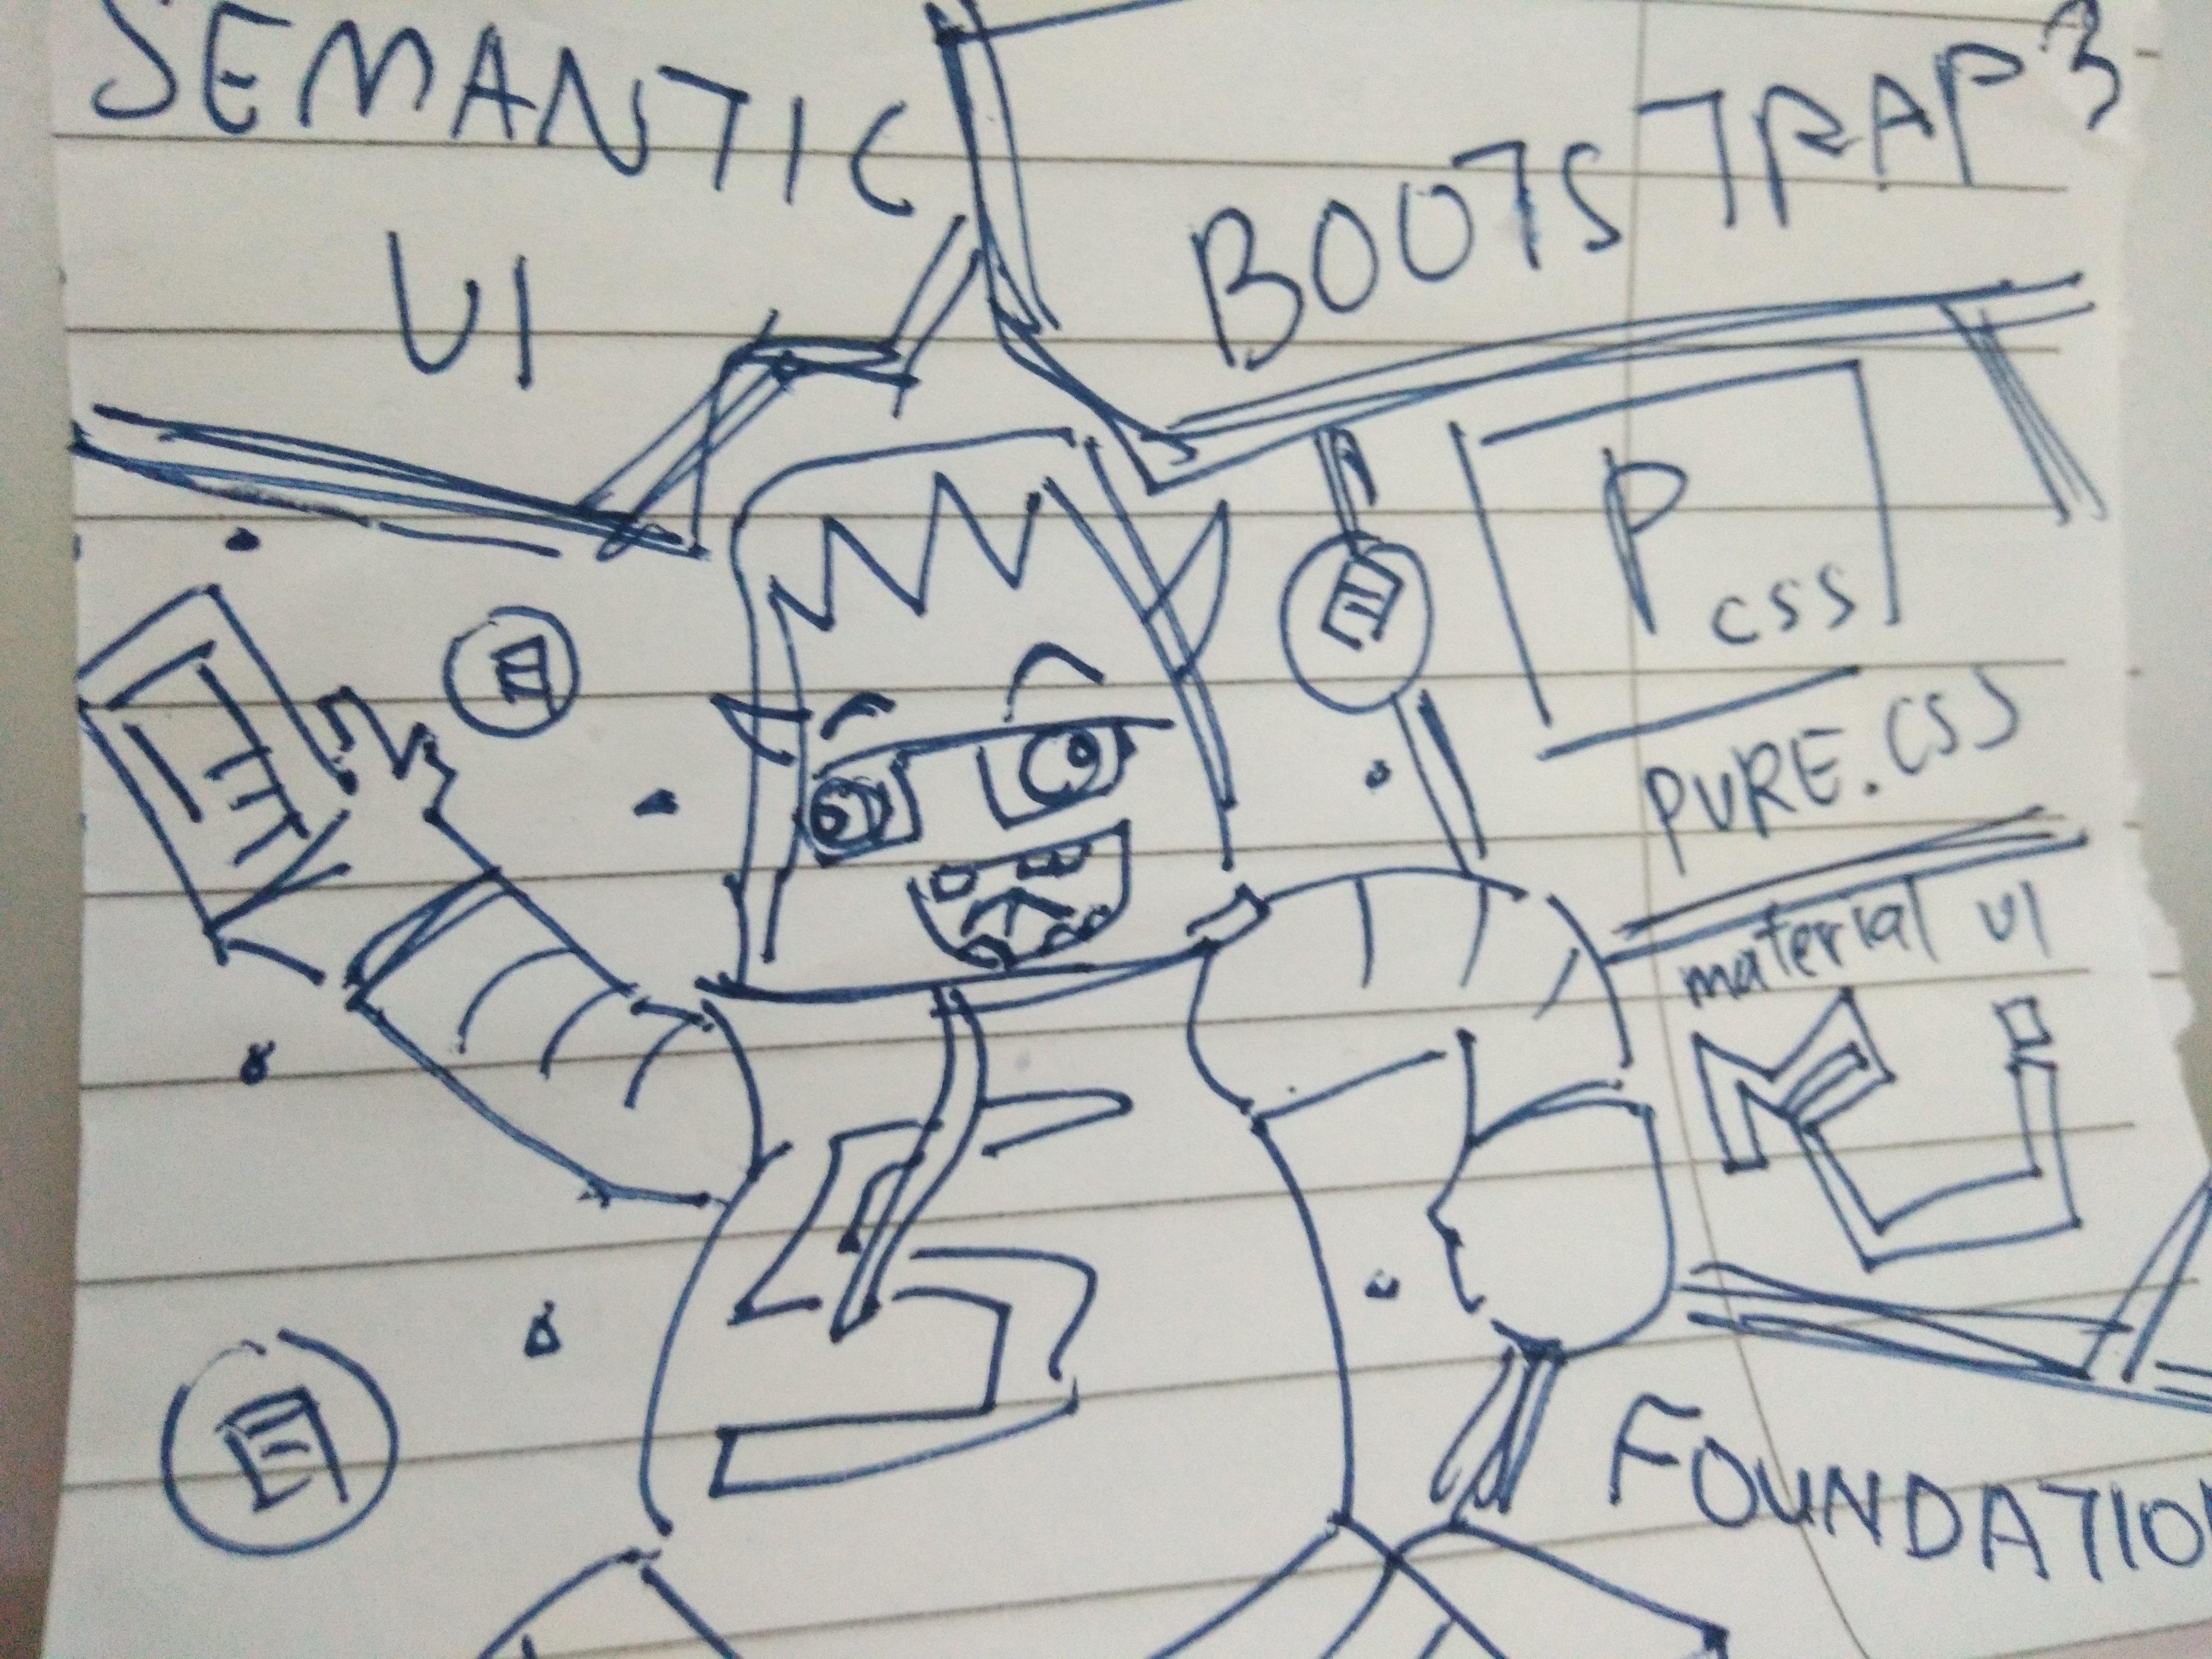 SEMANTIC
UI
BOOTSTRAP 3
P
css
PURE.CSS
material UI
FOUNDATION